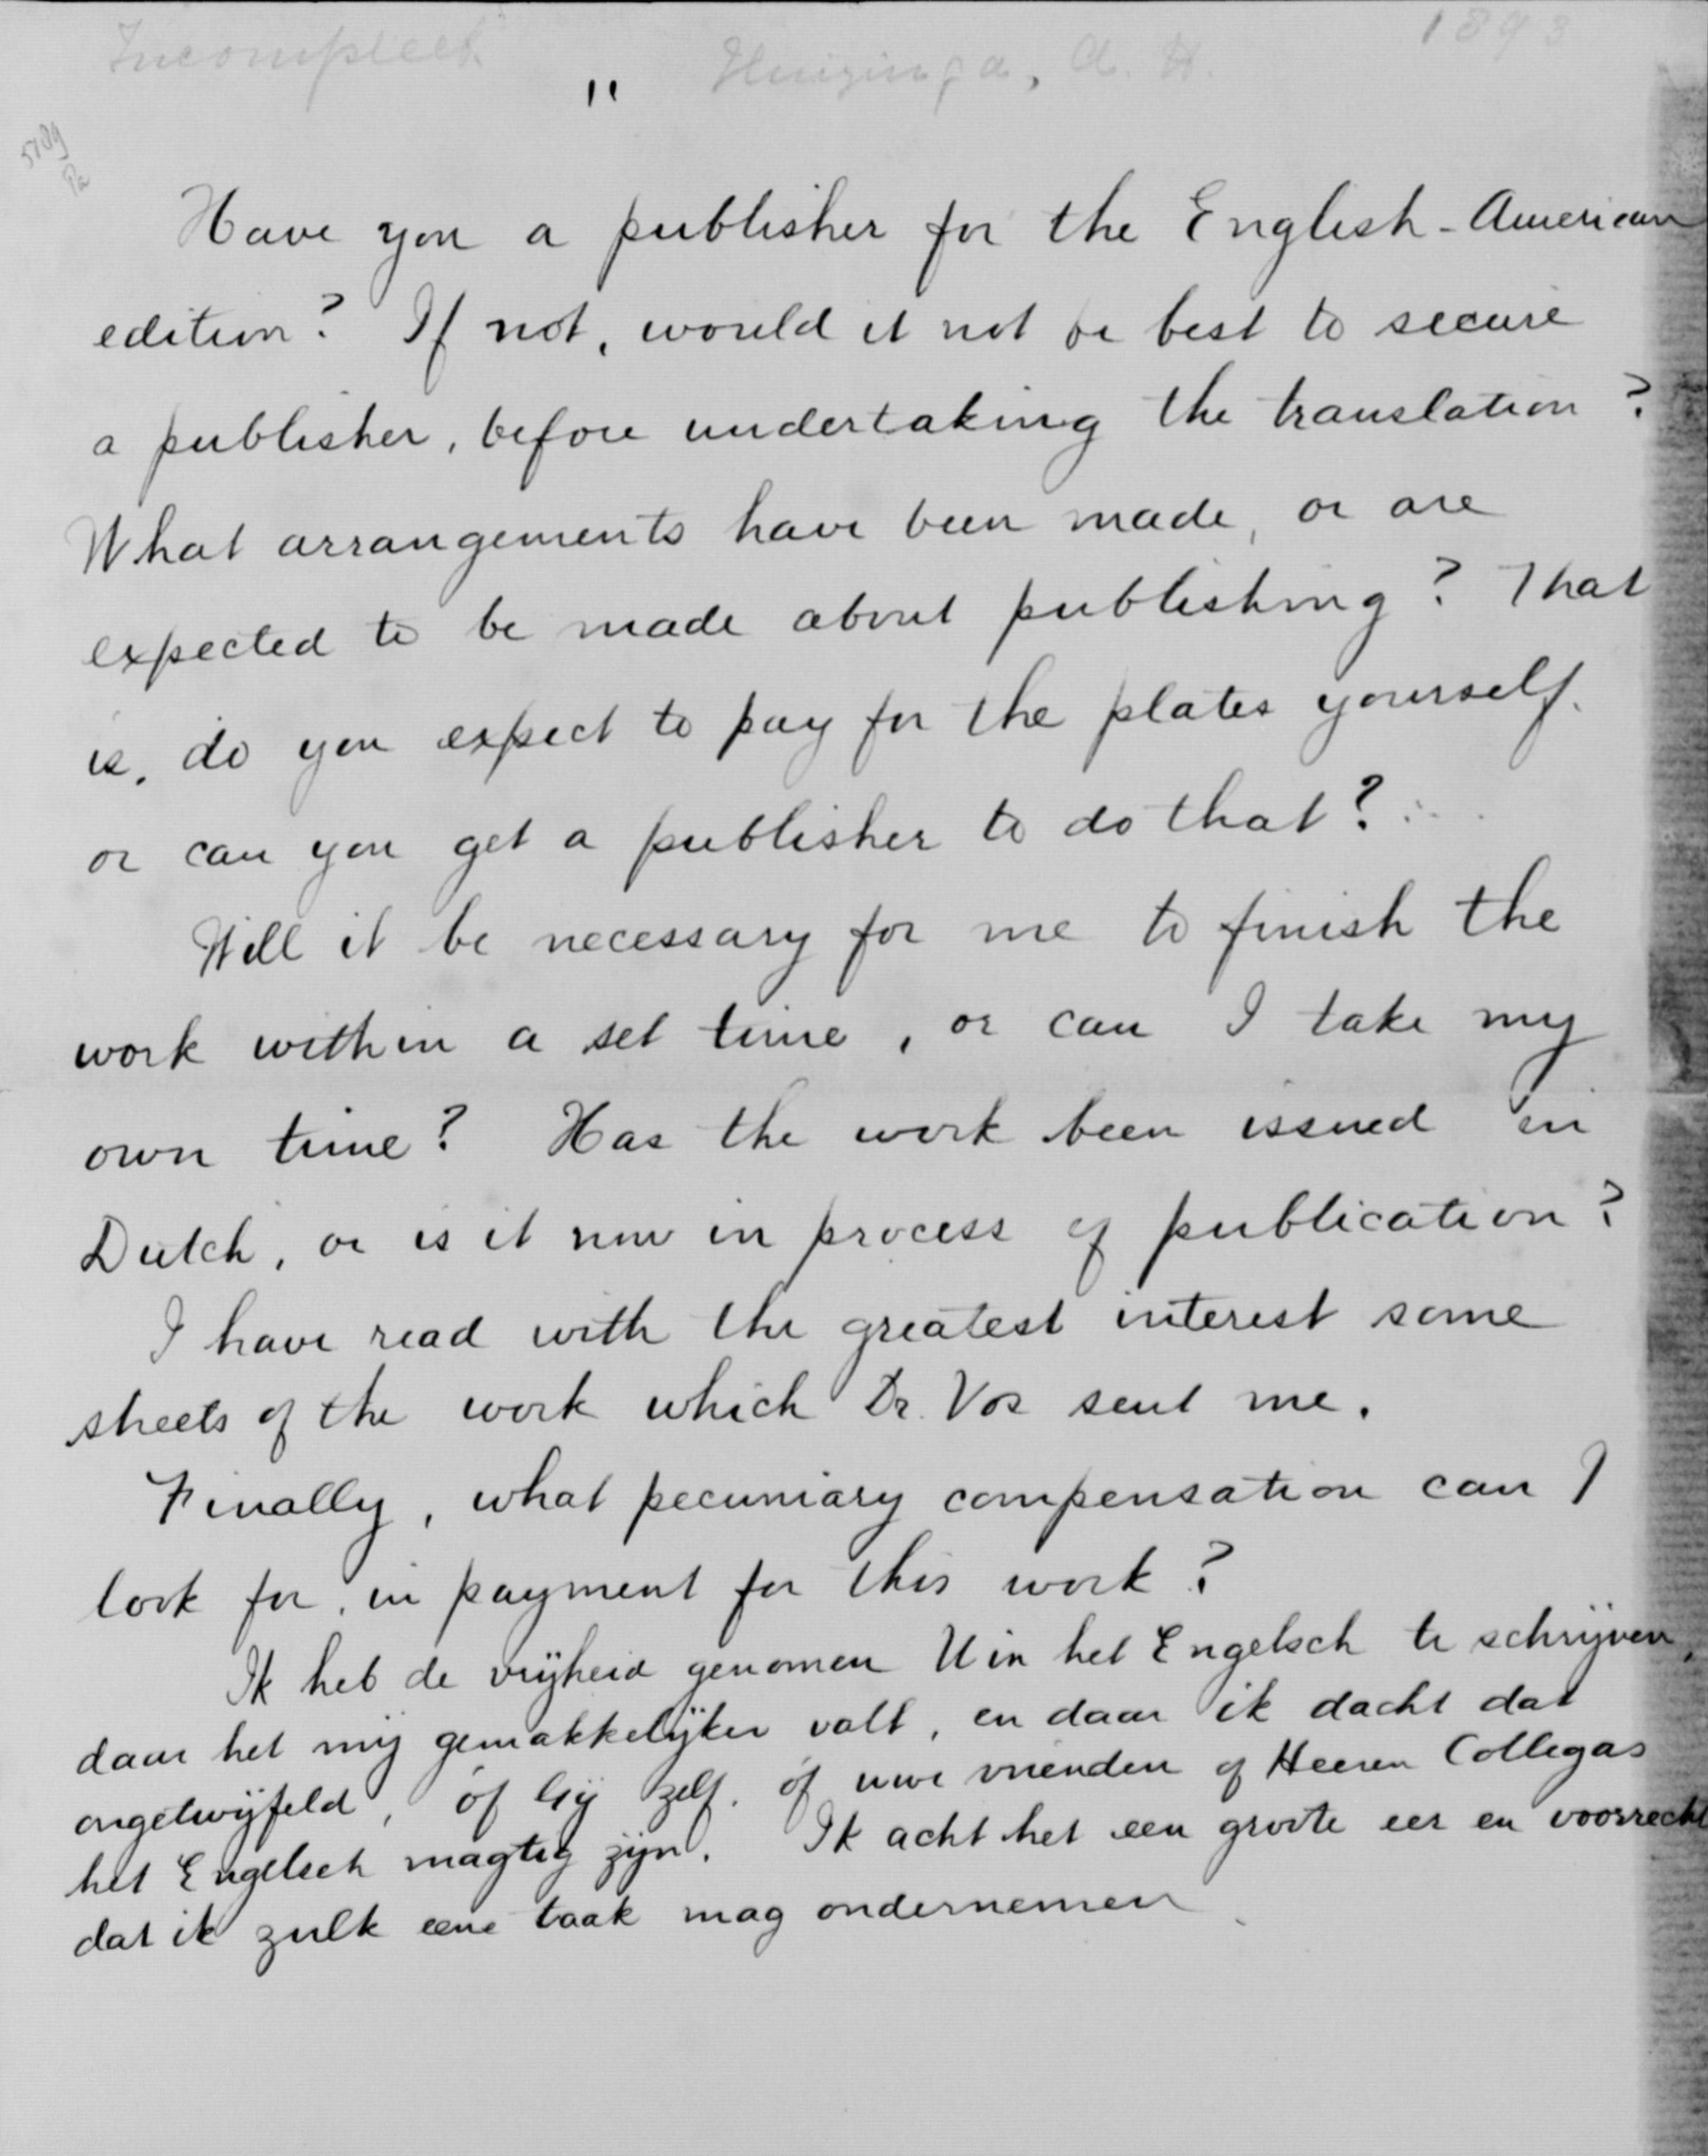 Incompleet
Huizinga, A. H.
1893
"
5189
Pa
Have you a publisher for the English-American
edition? If not, would it not be best to secure
a publisher, before undertaking the translation?
What arrangements have been made, or are
expected to be made about publishing? That
is, do you expect to pay for the plates yourself,
or can you get a publisher to do that?
Will it be necessary for me to finish the
work within a set time, or can I take my
own time? Has the work been issued in
Dutch, or is it now in process of publication?
I have read with the greatest interest some
sheets of the work which Dr. Vos sent me.
Finally, what pecuniary compensation can I
look for, in payment for this work?
Ik heb de vrijheid genomen U in het Engelsch te schrijven,
daar het mij gemakkelijker valt, en daar ik dacht dat
ongetwijfeld, óf Gij zelf, óf uwe vrienden of Heeren Collegas
het Engelsch magtig zijn. Ik acht het een groote eer en voorrecht
dat ik zulk eene taak mag ondernemen